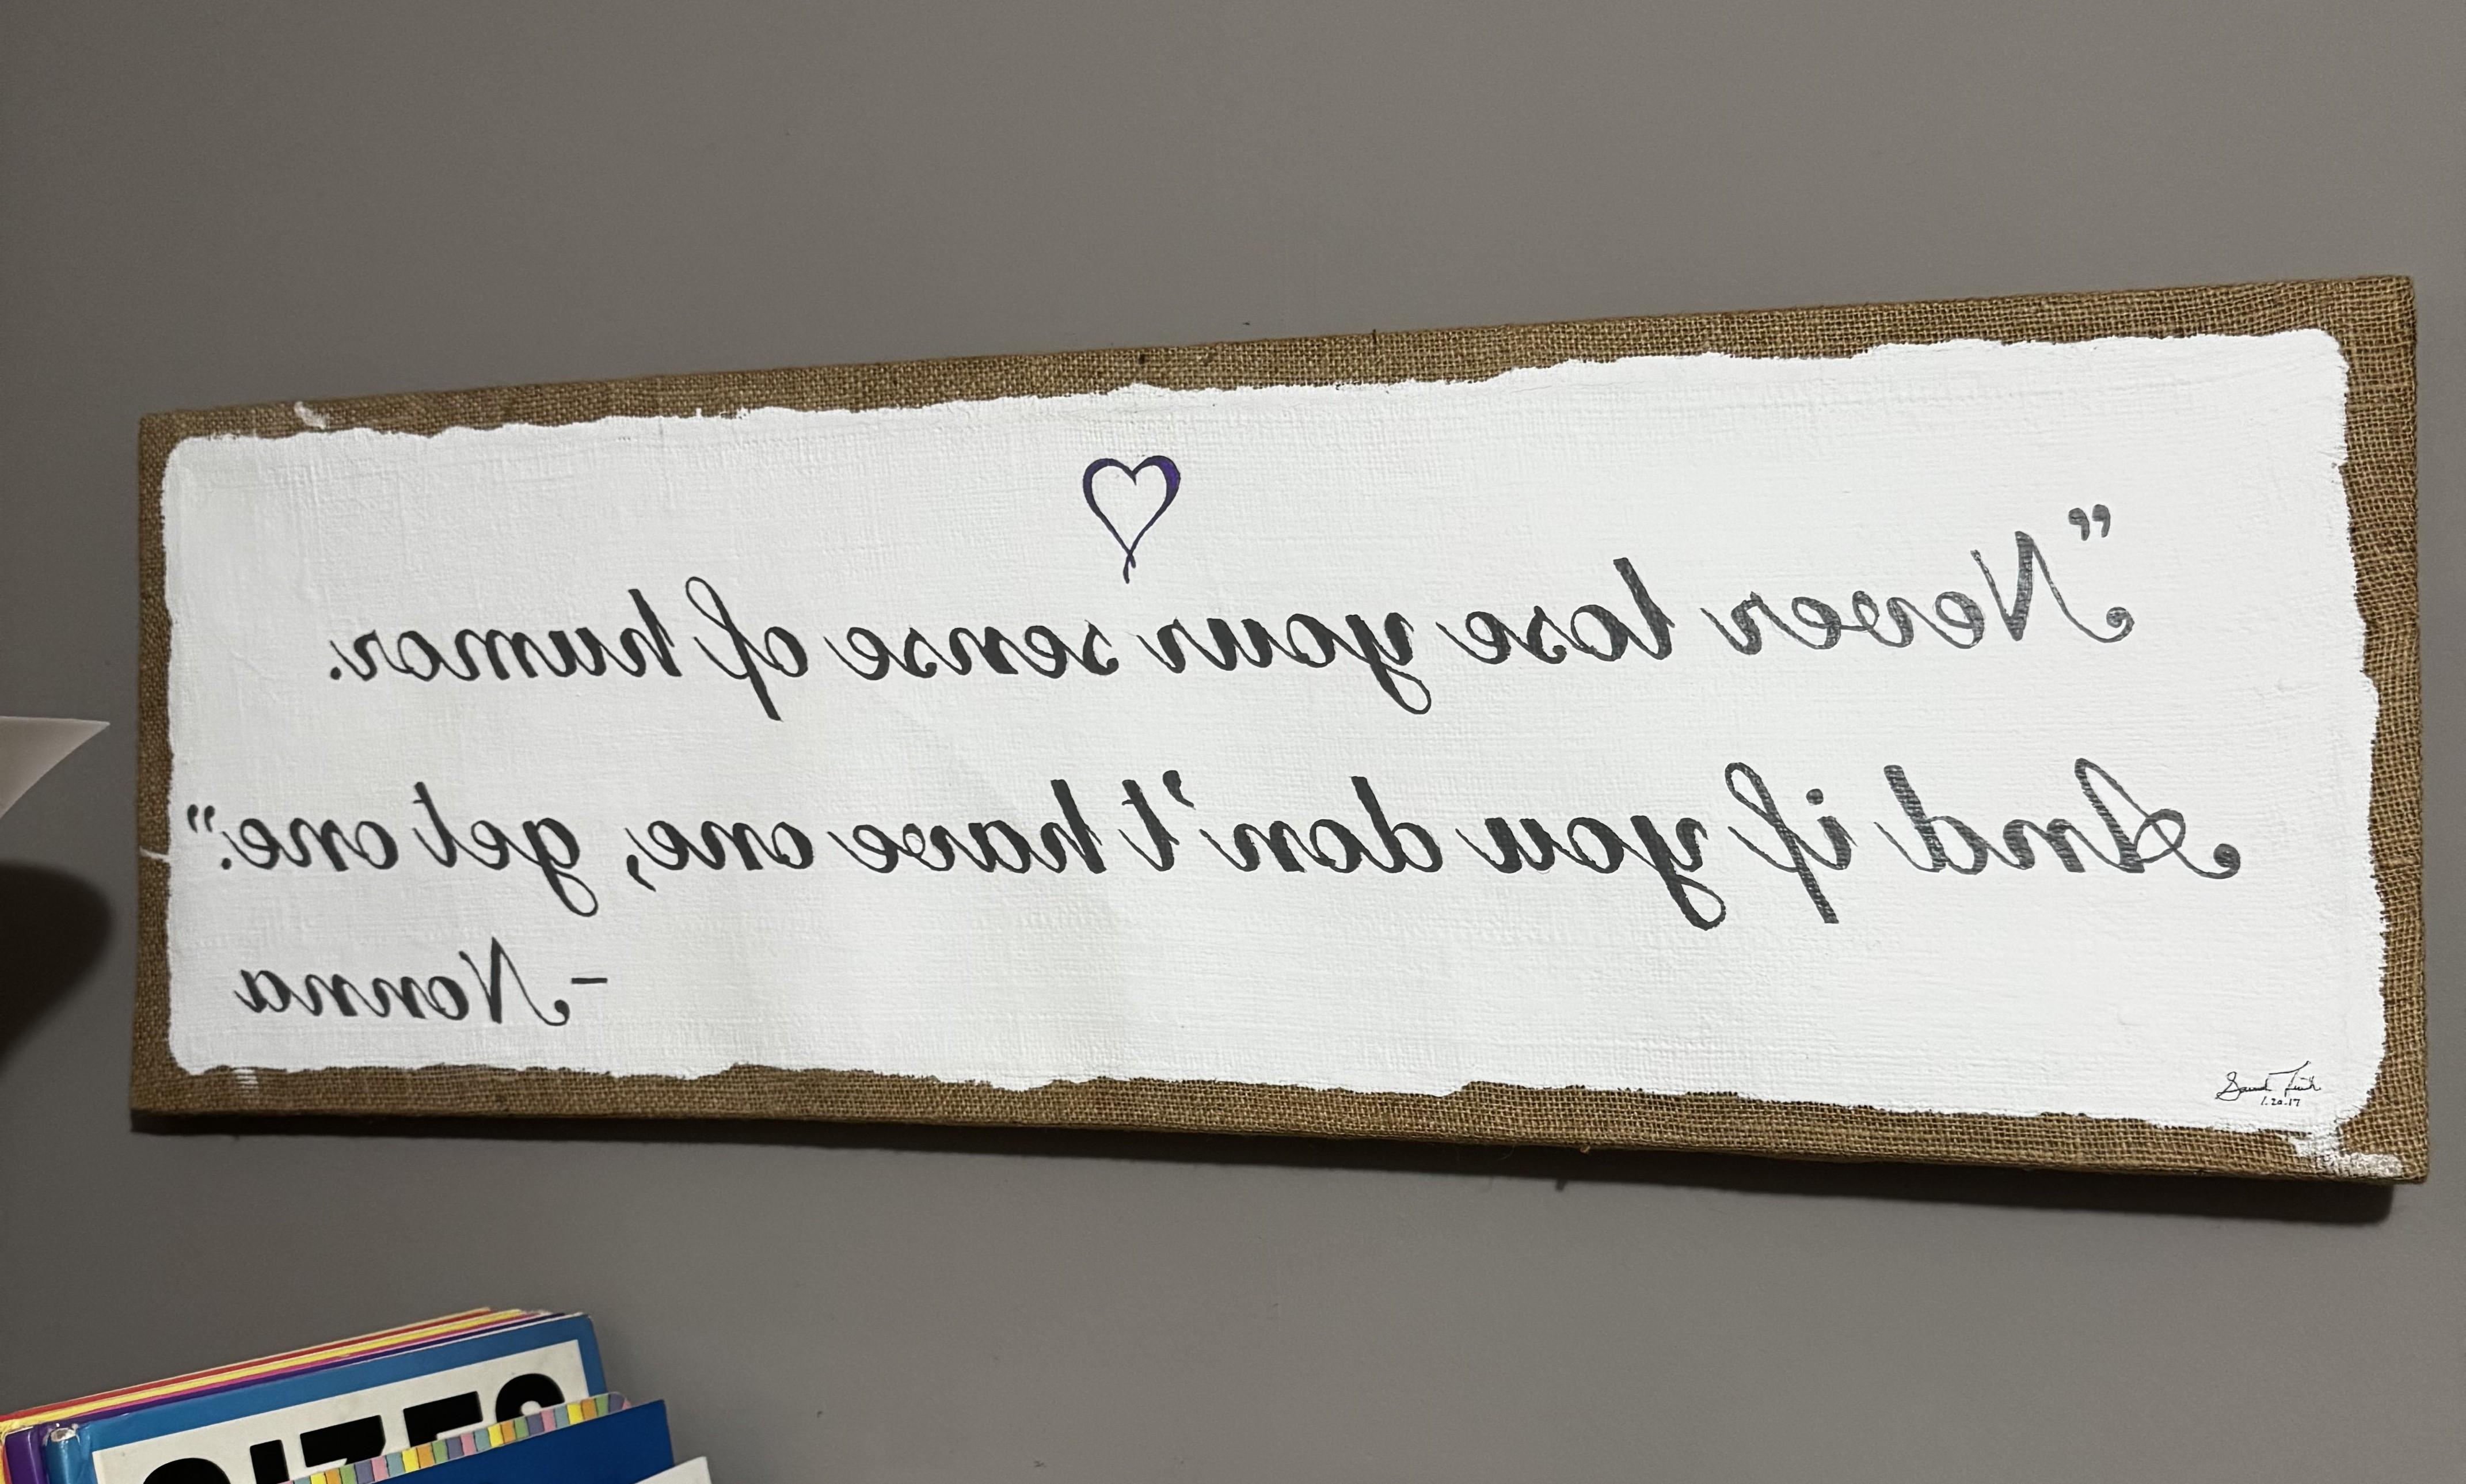 "Never lose your sense of humor.
And if you don't have one, get one."
-Nonna
1.20.17
SIZES